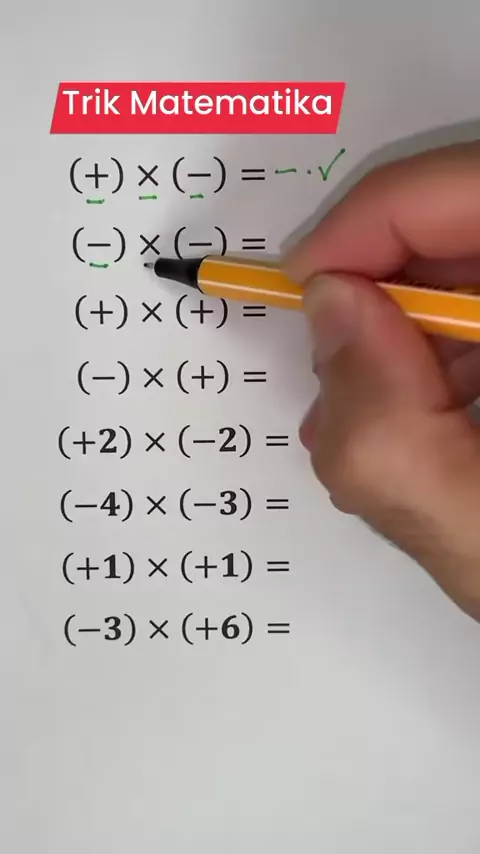 Trik Matematika
(+) × (−) = − ✓
(−) × (−) =
(+) × (+) =
(−) × (+) =
(+2) × (−2) =
(−4) × (−3) =
(+1) × (+1) =
(−3) × (+6) =